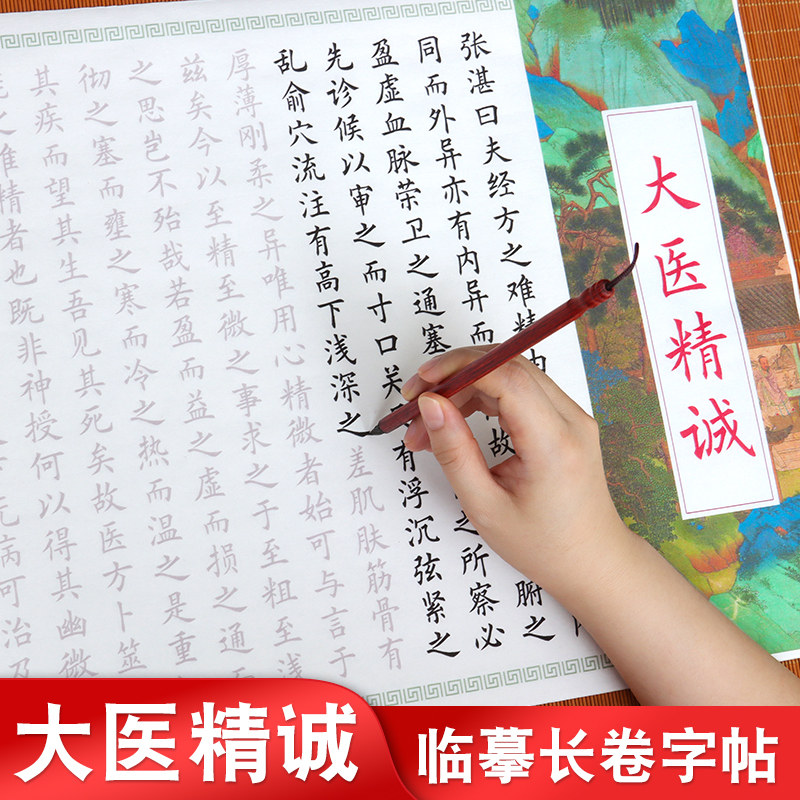 张湛曰夫经方之难精
同而外异亦有内异而 故 腑之
盈虚血脉荣卫之通塞 之所察必
先诊候以审之而寸口关 有浮沉弦紧之
乱俞穴流注有高下浅深之差肌肤筋骨有
厚薄刚柔之异唯用心精微者始可与言于
兹矣今以至精至微之事求之于至粗至浅
之思岂不殆哉若盈而益之虚而损之通而
彻之塞而壅之寒而冷之热而温之是重
其疾而望其生吾见其死矣故医方卜筮
之难精者也既非神授何以得其幽微
病可治及
大医精诚
大医精诚
临摹长卷字帖